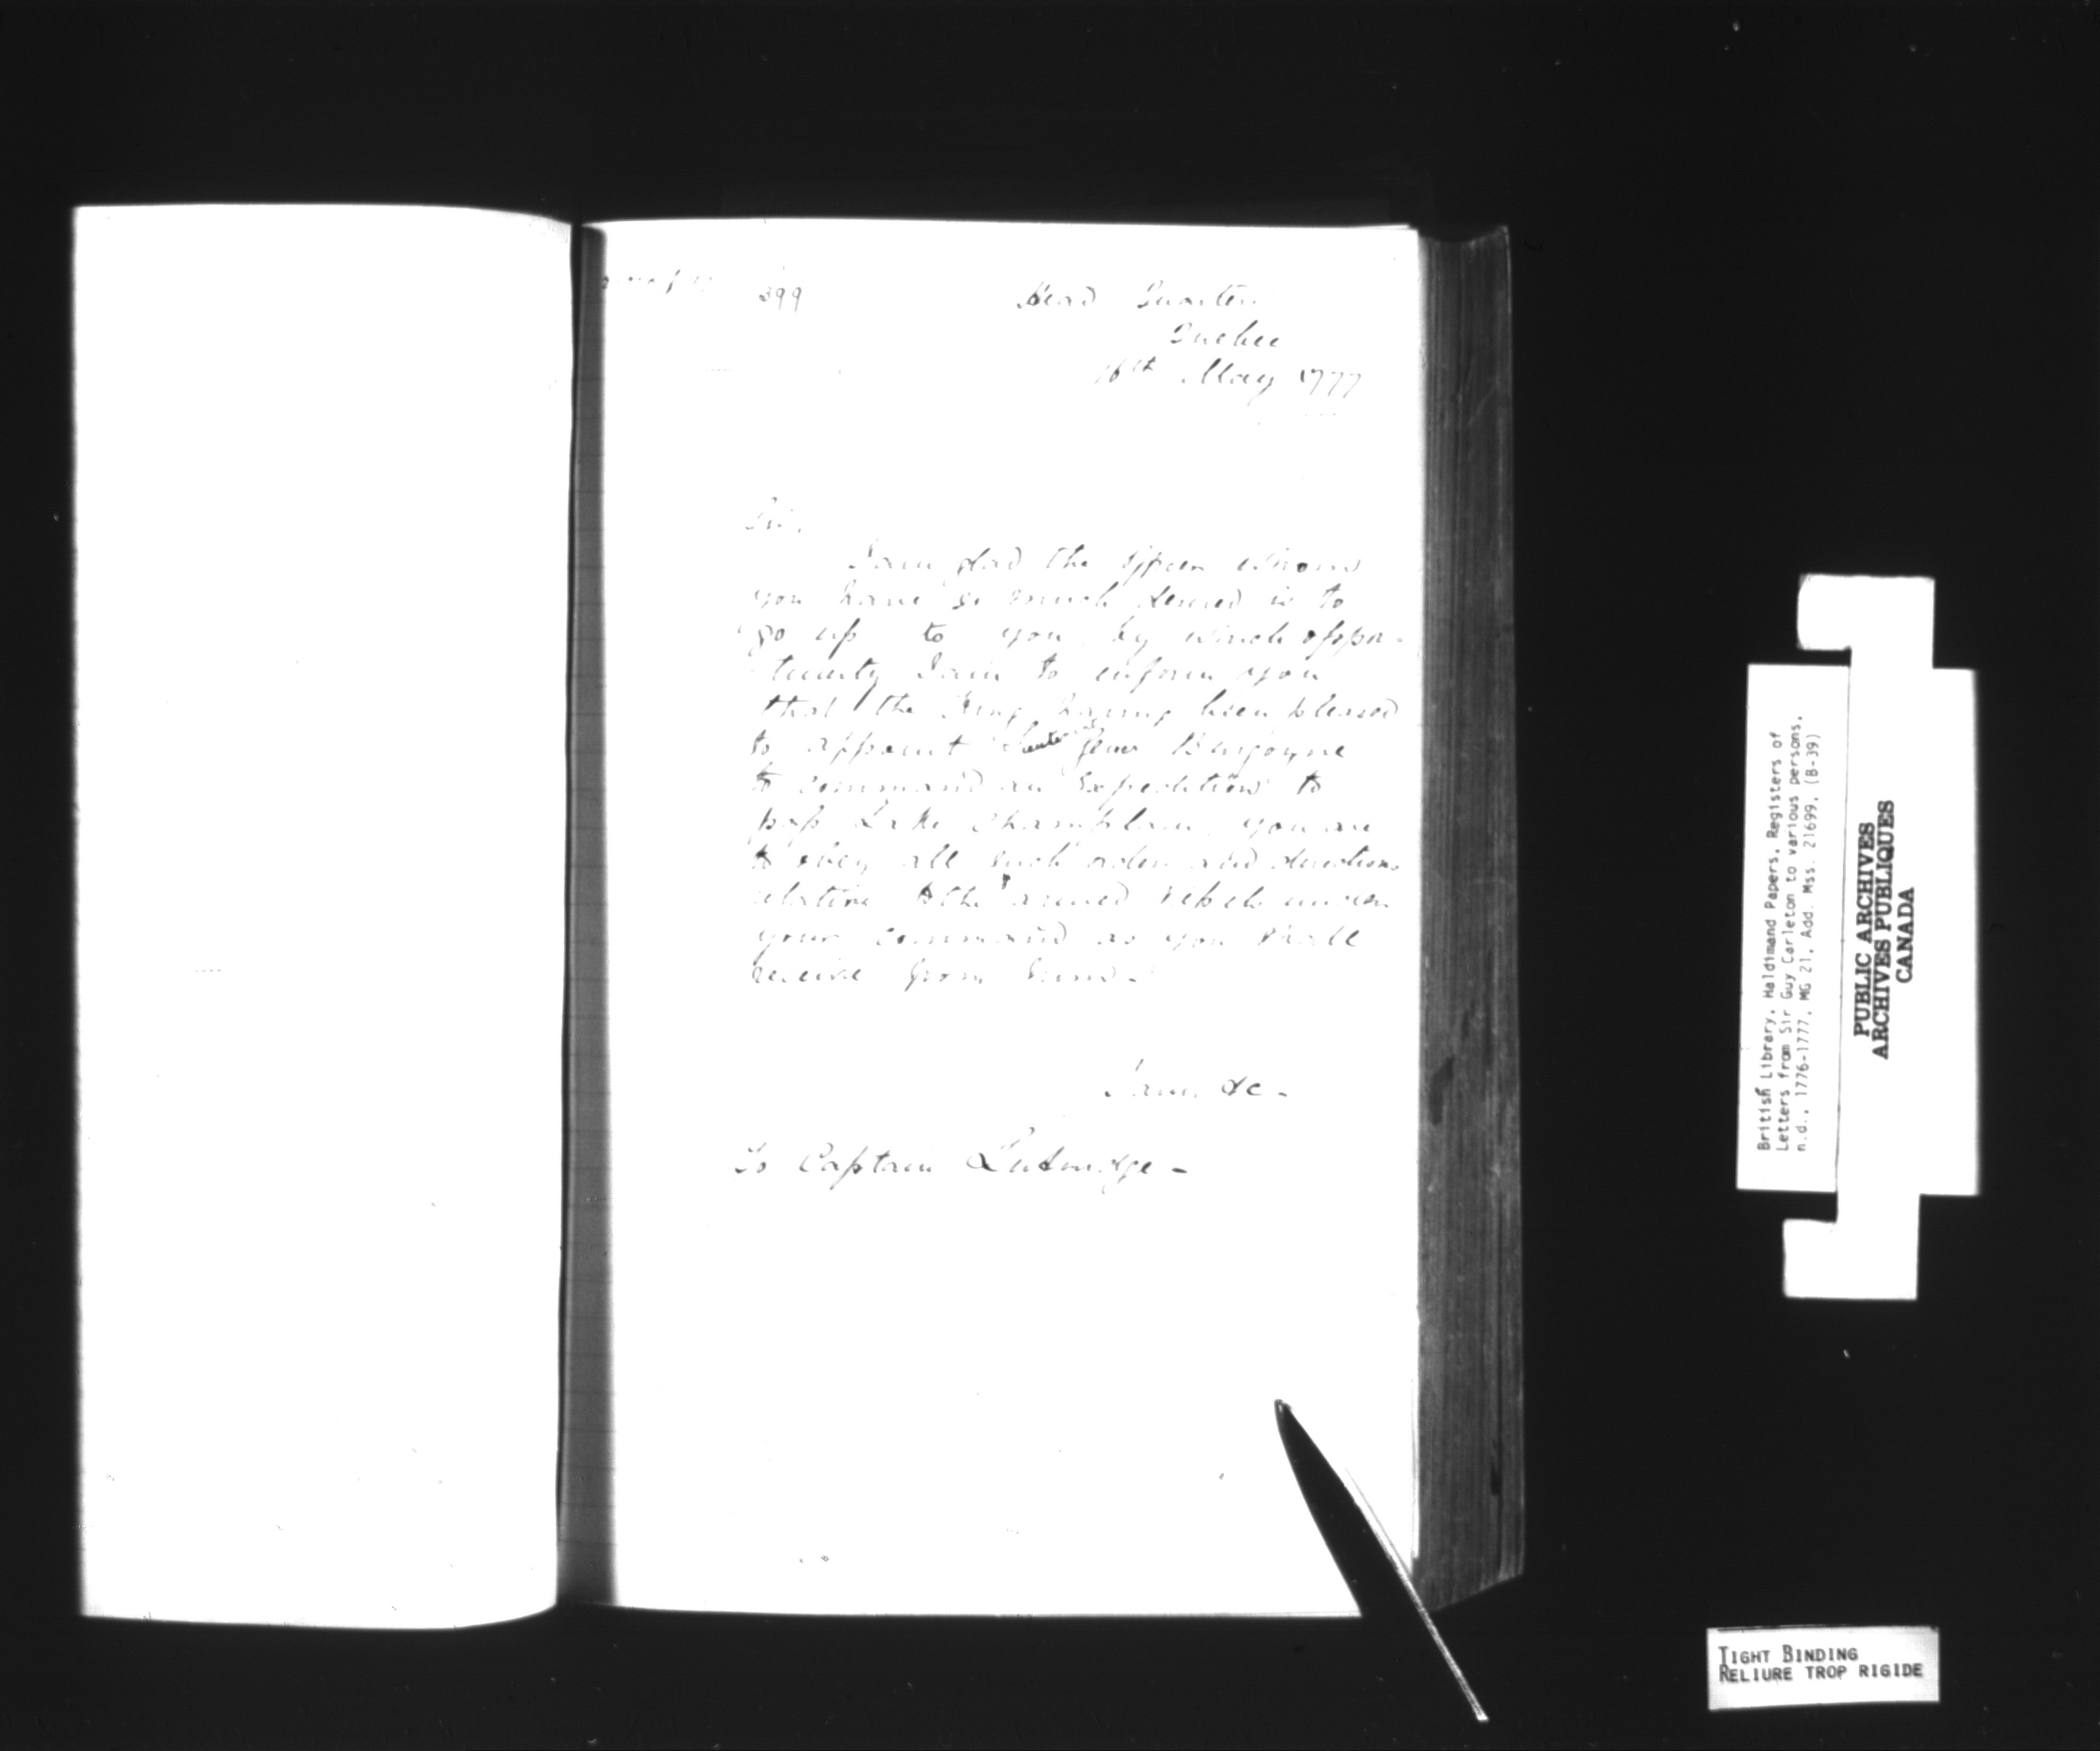 299
Head Quarters
Quebec
16th May 1777
Sir,
I am glad the Officer whom
you have so much desired is to
go up to you, by which oppor-
tunity I am to inform you
that the King having been pleased
to appoint Lieut Genl Burgoyne
to command an Expedition to
pass Lake Champlain, you are
to obey all such orders and directions
relative to the armed Vessels under
your command as you shall
receive from him-
I am, &c-
To Captain Lutwidge-
British Library, Haldimand Papers, Registers of
Letters from Sir Guy Carleton to various persons,
n.d., 1776-1777, MG 21, Add. Mss. 21699, (B-39)
PUBLIC ARCHIVES
ARCHIVES PUBLIQUES
CANADA
TIGHT BINDING
RELIURE TROP RIGIDE